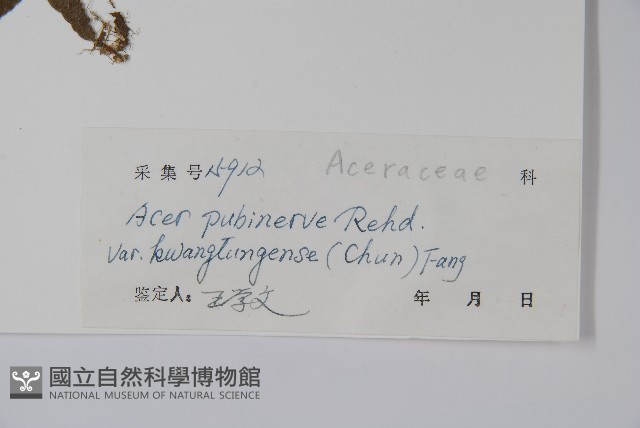 采集号 15912 Aceraceae 科
Acer pubinerve Rehd.
var. kwangtungense (Chun) Fang
鉴定人: 王学文 年 月 日
國立自然科學博物館
NATIONAL MUSEUM OF NATURAL SCIENCE